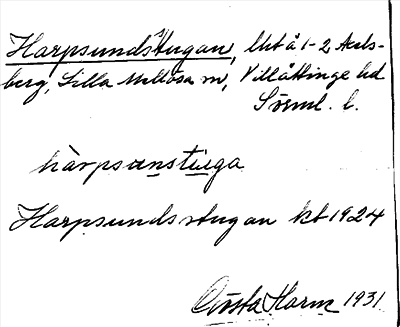 Harpsundsstugan, Utå 1-2 Axels-
berg, Lilla Mellösa sn, Villåttinge hd
Sörml. l.
harpsunstuga
Harpsundsstugan kb 1924
Gösta Harm 1931